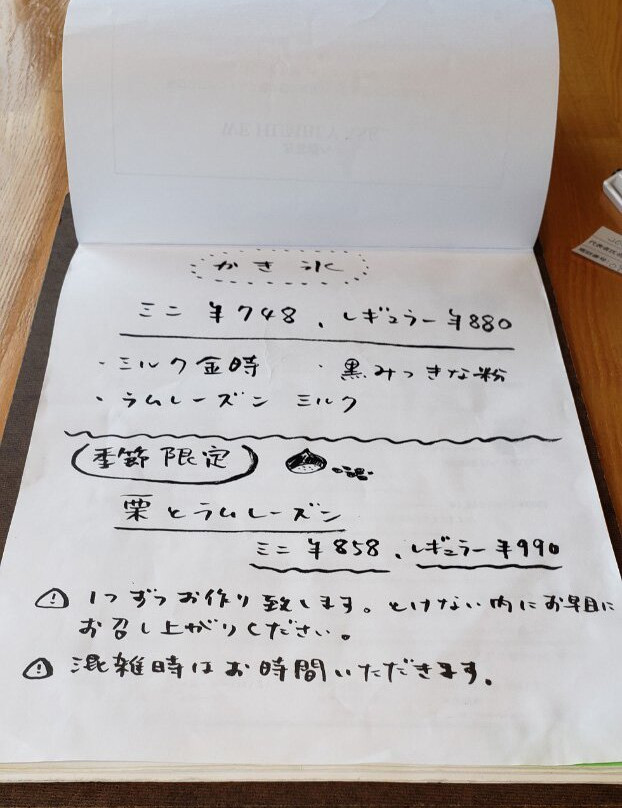 かき氷
ミニ ¥748、レギュラー ¥880
・ミルク金時 ・黒みつきな粉
・ラムレーズン ミルク
季節限定
栗とラムレーズン
ミニ ¥858、レギュラー ¥990
1つずつお作り致します。とけない内にお早目に
お召し上がりください。
混雑時はお時間いただきます。